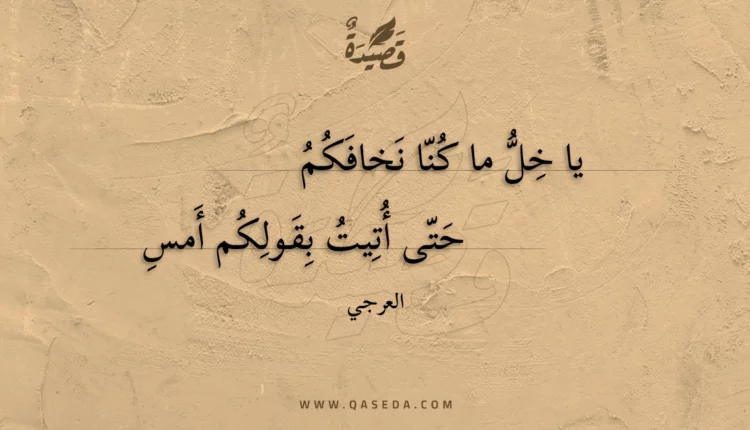 قَصِيدَةٌ
يا خِلُّ ما كُنّا نَخافَكُمُ
حَتّى أُتِيتُ بِقَولِكُم أَمسِ
العرجي
WWW.QASEDA.COM